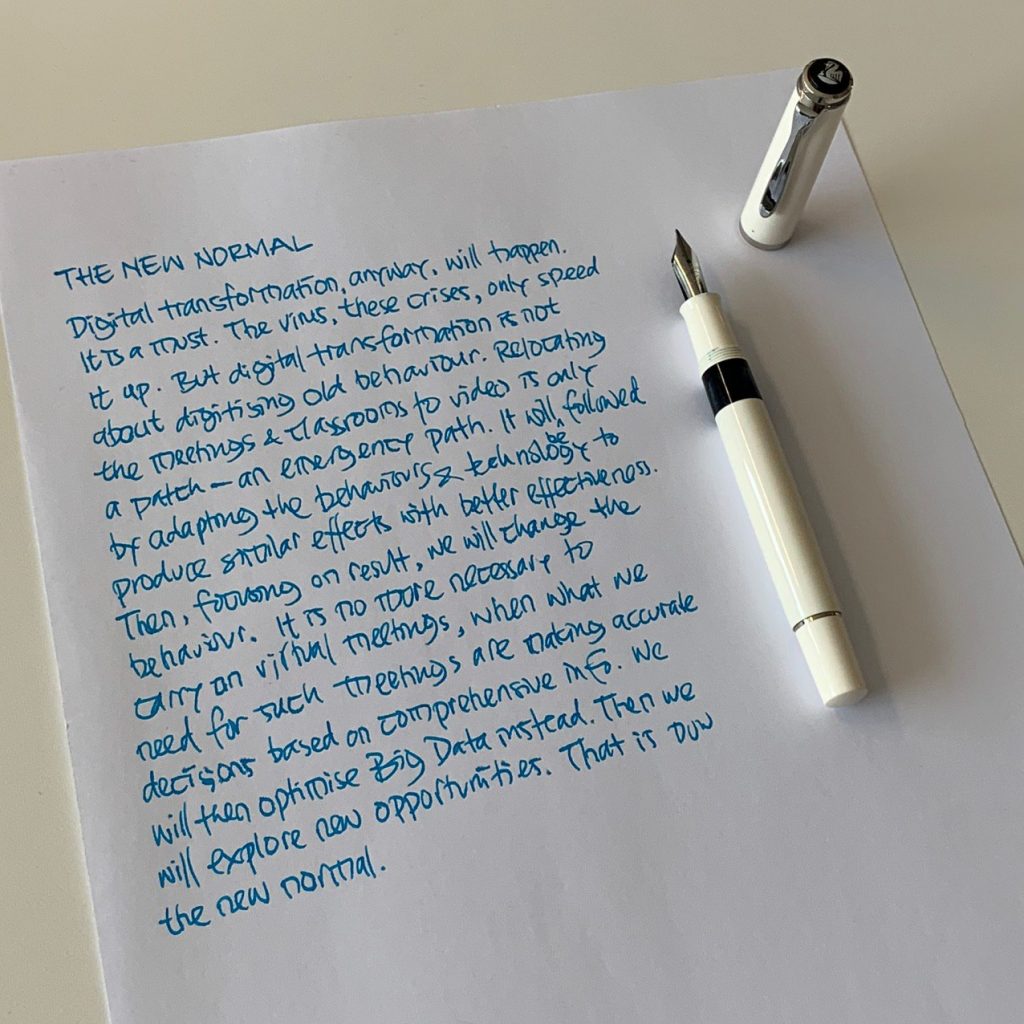 THE NEW NORMAL
Digital transformation, anyway, will happen.
It is a must. The virus, these crises, only speed
it up. But digital transformation is not
about digitising old behaviour. Relocating
the meetings & classrooms to video is only
a patch — an emergency path. It will be followed
by adapting the behaviours & technology to
produce similar effects with better effectiveness.
Then, focusing on result, we will change the
behaviour. It is no more necessary to
carry on virtual meetings, when what we
need for such meetings are making accurate
decisions based on comprehensive info. We
will then optimise Big Data instead. Then we
will explore new opportunities. That is our
the new normal.